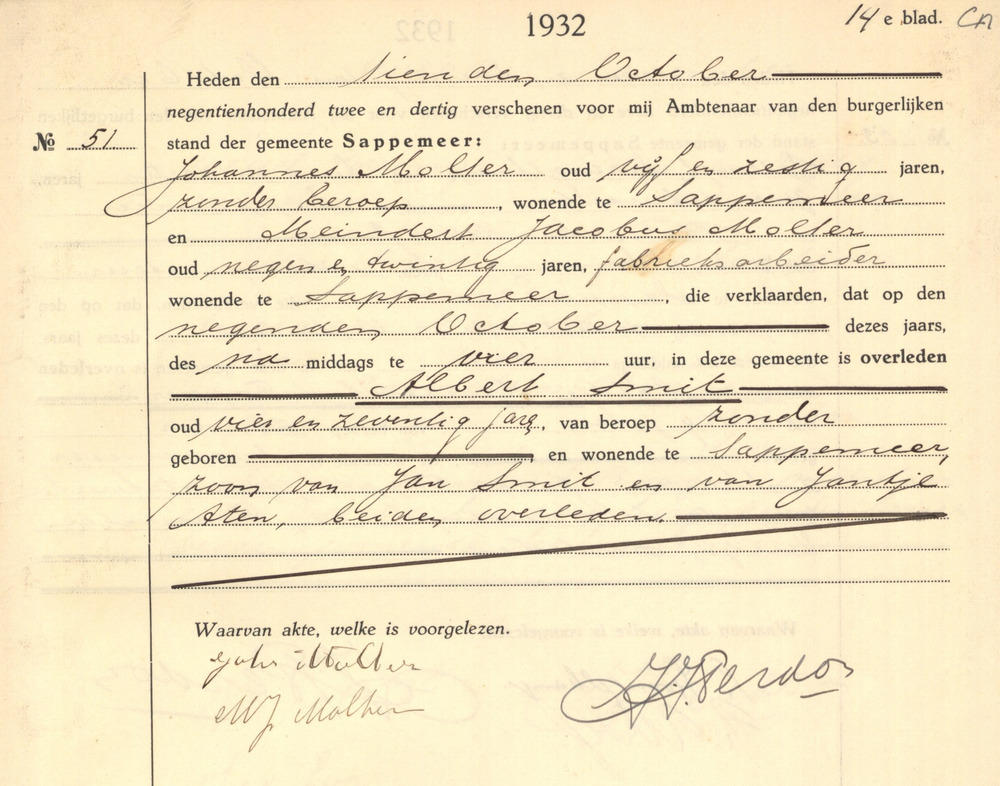 1932
14 e blad. CA
Heden den tienden October
negentienhonderd twee en dertig verschenen voor mij Ambtenaar van den burgerlijken
No 51. stand der gemeente Sappemeer:
Johannes Molter oud vijf en zestig jaren,
zonder beroep, wonende te Sappemeer
en Meindert Jacobus Molter
oud negen en twintig jaren, fabrieksarbeider
wonende te Sappemeer, die verklaarden, dat op den
negenden October dezes jaars,
des na middags te vier uur, in deze gemeente is overleden
Albert Smit
oud vier en zeventig jaren, van beroep zonder
geboren en wonende te Sappemeer,
zoon van Jan Smit en van Jantje
Aten, beiden overleden.
Waarvan akte, welke is voorgelezen.
Joh. Molter
MJ Molter